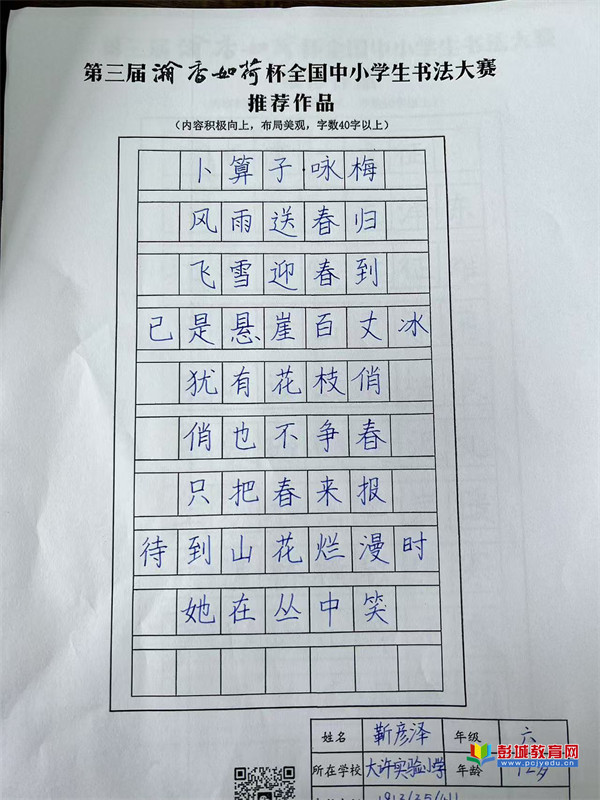 第三届瀚香如荷杯全国中小学生书法大赛
推荐作品
（内容积极向上，布局美观，字数40字以上）
卜算子·咏梅
风雨送春归
飞雪迎春到
已是悬崖百丈冰
犹有花枝俏
俏也不争春
只把春来报
待到山花烂漫时
她在丛中笑
姓名 靳彦泽 年级 六
所在学校 大许实验小学 年龄 12岁
彭城教育网
www.pcjyedu.cn